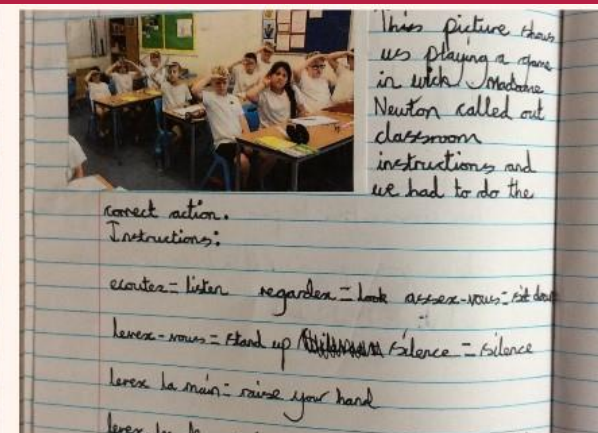 This picture shows
us playing a game
in wich Madame
Newton called out
classroom
instructions and
we had to do the
correct action.
Instructions:
ecoutez = listen regardez = Look assex-vous = sit down
levez-vous = stand up silence = silence
levez la main = raise your hand
levez